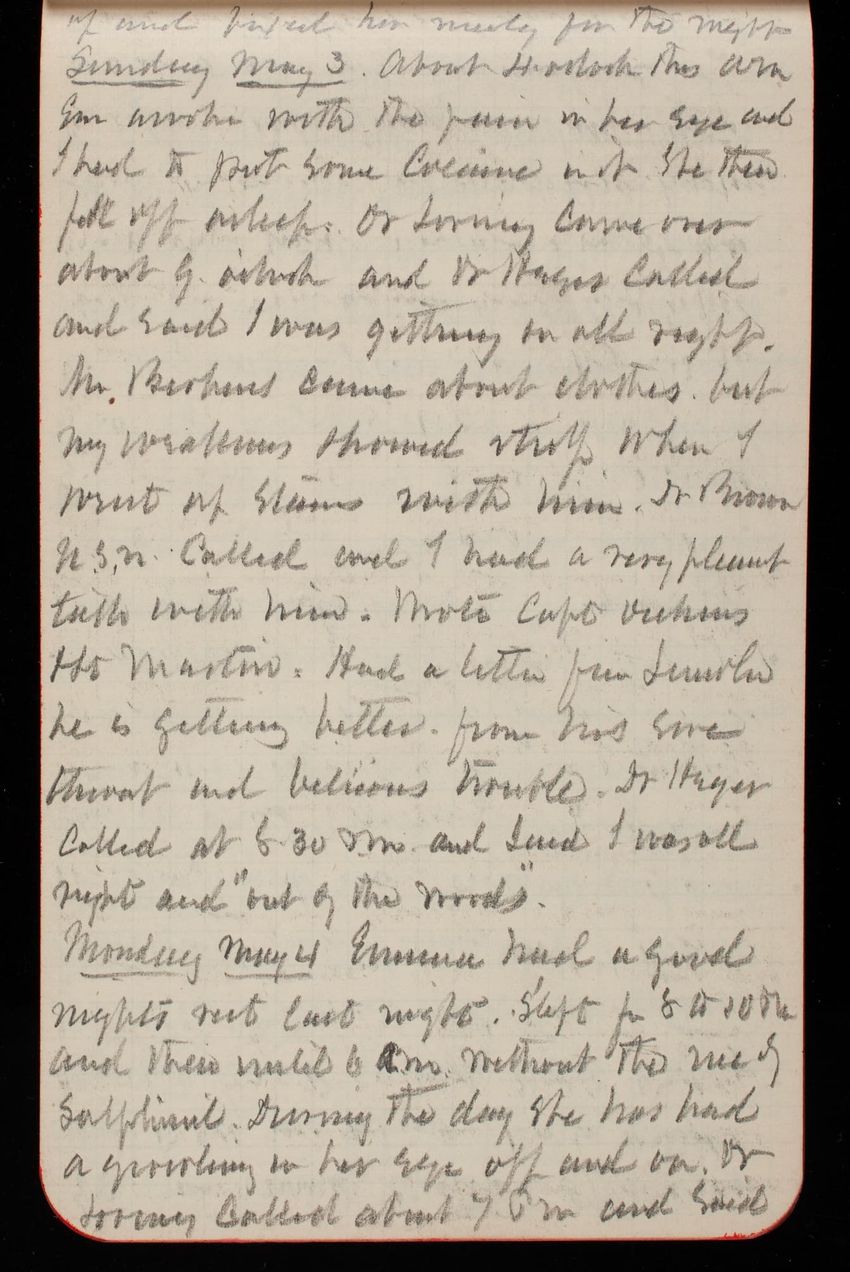 up and fixed her nicely for the night
Sunday May 3. About 4 oclock this am
Em awoke with the pain in her eye and
I had to put some Cocaine in it She then
fell off asleep. Dr Loring Came over
about 9. oclock and Dr Hager Called
and said I was getting on all right.
Mr. Came about clothes. but
my weakness showed itself when I
went up stairs with him. Dr Brown
U.S.N. Called and I had a very pleasant
talk with him. Wrote Capt
Martin. Had a letter from Lincoln
he is getting better. from his sore
throat and bilious trouble. Dr Hager
Called at 8 30 Pm. and Said I was all
right and "out of the woods".
Monday May 4 Emma had a good
nights rest last night. Slept fr 8 to 10 Pm
and then until 6 am. without the use of
Sulphonil. During the day She has had
a growling in her eye off and on. Dr
Loring Called about 7 Pm and Said